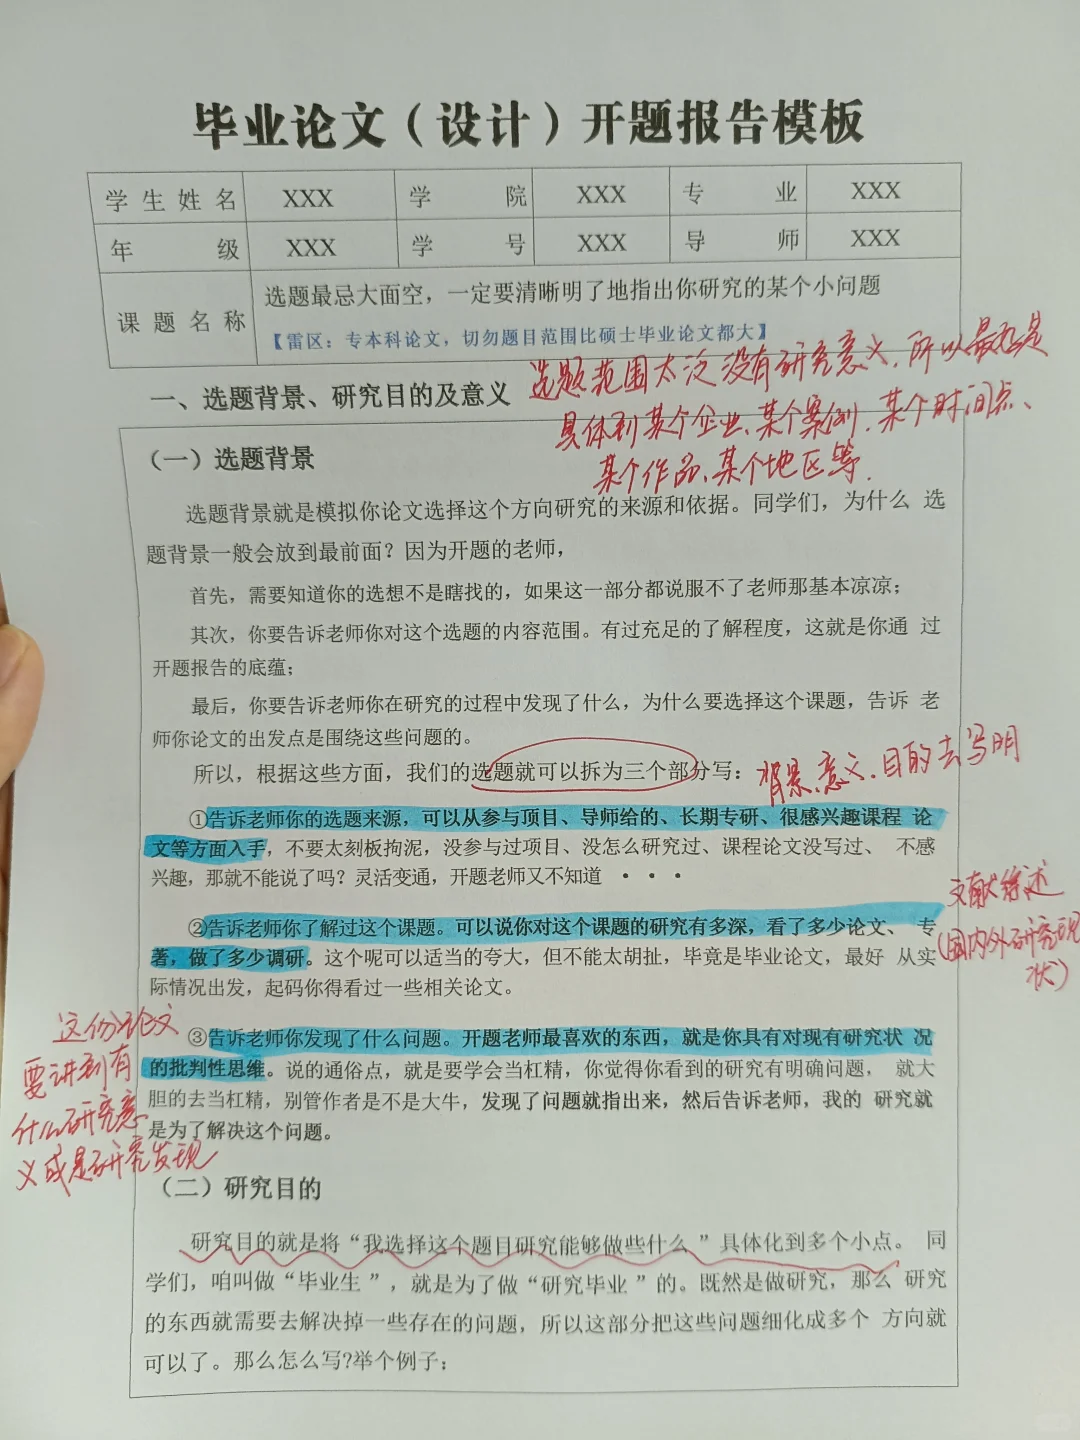 毕业论文（设计）开题报告模板
学生姓名 XXX 学院 XXX 专业 XXX
年级 XXX 学号 XXX 导师 XXX
课题名称
选题最忌大面空，一定要清晰明了地指出你研究的某个小问题
【雷区：专本科论文，切勿题目范围比硕士毕业论文都大】
选题范围太泛没有研究意义，所以最好是
具体到某个企业、某个案例、某个时间点、
某个作品、某个地区等.
一、选题背景、研究目的及意义
（一）选题背景
选题背景就是模拟你论文选择这个方向研究的来源和依据。同学们，为什么 选
题背景一般会放到最前面？因为开题的老师，
首先，需要知道你的选想不是瞎找的，如果这一部分都说服不了老师那基本凉凉；
其次，你要告诉老师你对这个选题的内容范围。有过充足的了解程度，这就是你通 过
开题报告的底蕴；
最后，你要告诉老师你在研究的过程中发现了什么，为什么要选择这个课题，告诉 老
师你论文的出发点是围绕这些问题的。
所以，根据这些方面，我们的选题就可以拆为三个部分写：
背景、意义、目的去写明
①告诉老师你的选题来源，可以从参与项目、导师给的、长期专研、很感兴趣课程 论
文等方面入手，不要太刻板拘泥，没参与过项目、没怎么研究过、课程论文没写过、 不感
兴趣，那就不能说了吗？灵活变通，开题老师又不知道 · · ·
②告诉老师你了解过这个课题。可以说你对这个课题的研究有多深，看了多少论文、 专
著，做了多少调研。这个呢可以适当的夸大，但不能太胡扯，毕竟是毕业论文，最好 从实
际情况出发，起码你得看过一些相关论文。
文献综述
(国内外研究现
状)
③告诉老师你发现了什么问题。开题老师最喜欢的东西，就是你具有对现有研究状 况
的批判性思维。说的通俗点，就是要学会当杠精，你觉得你看到的研究有明确问题， 就大
胆的去当杠精，别管作者是不是大牛，发现了问题就指出来，然后告诉老师，我的 研究就
是为了解决这个问题。
这份论文
要讲到有
什么研究意
义或是研究发现
（二）研究目的
研究目的就是将“我选择这个题目研究能够做些什么 ”具体化到多个小点。 同
学们，咱叫做“毕业生 ”，就是为了做“研究毕业 ”的。既然是做研究，那么 研究
的东西就需要去解决掉一些存在的问题，所以这部分把这些问题细化成多个 方向就
可以了。那么怎么写?举个例子；